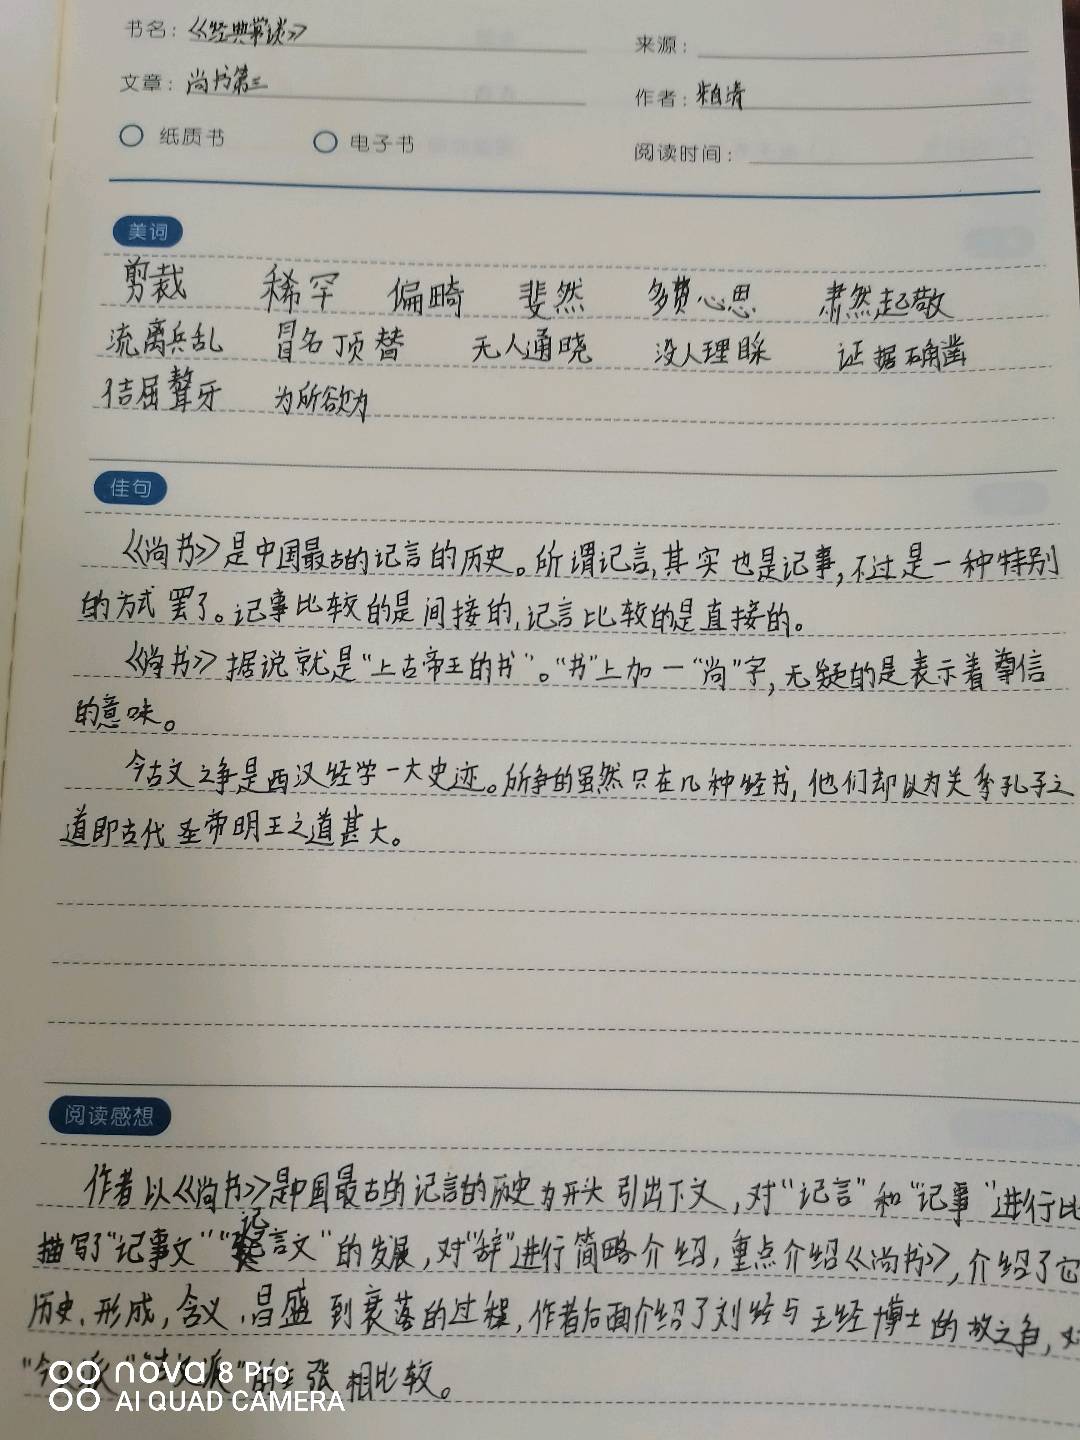 书名：《经典常谈》
来源：
文章：尚书第三
作者：朱自清
纸质书 电子书
阅读时间：
美词
剪裁 稀罕 偏畸 斐然 多费心思 肃然起敬
流离兵乱 冒名顶替 无人通晓 没人理睬 证据确凿
佶屈聱牙 为所欲为
佳句
《尚书》是中国最古的记言的历史。所谓记言,其实也是记事,不过是一种特别
的方式罢了。记事比较的是间接的,记言比较的是直接的。
《尚书》据说就是“上古帝王的书”。“书”上加一“尚”字,无疑的是表示着尊信
的意味。
今古文之争是西汉经学一大史迹。所争的虽然只在几种经书,他们却以为关系孔子之
道即古代圣帝明王之道甚大。
阅读感想
作者以《尚书》是中国最古的记言的历史为开头引出下文,对“记言”和“记事”进行比
描写了“记事文”“记言文”的发展,对“辞”进行简略介绍,重点介绍《尚书》,介绍了它
历史、形成,含义,昌盛到衰落的过程,作者后面介绍了刘经与王经博士的故之争,
“今文派”“古文派”的主张相比较。
nova 8 Pro
AI QUAD CAMERA